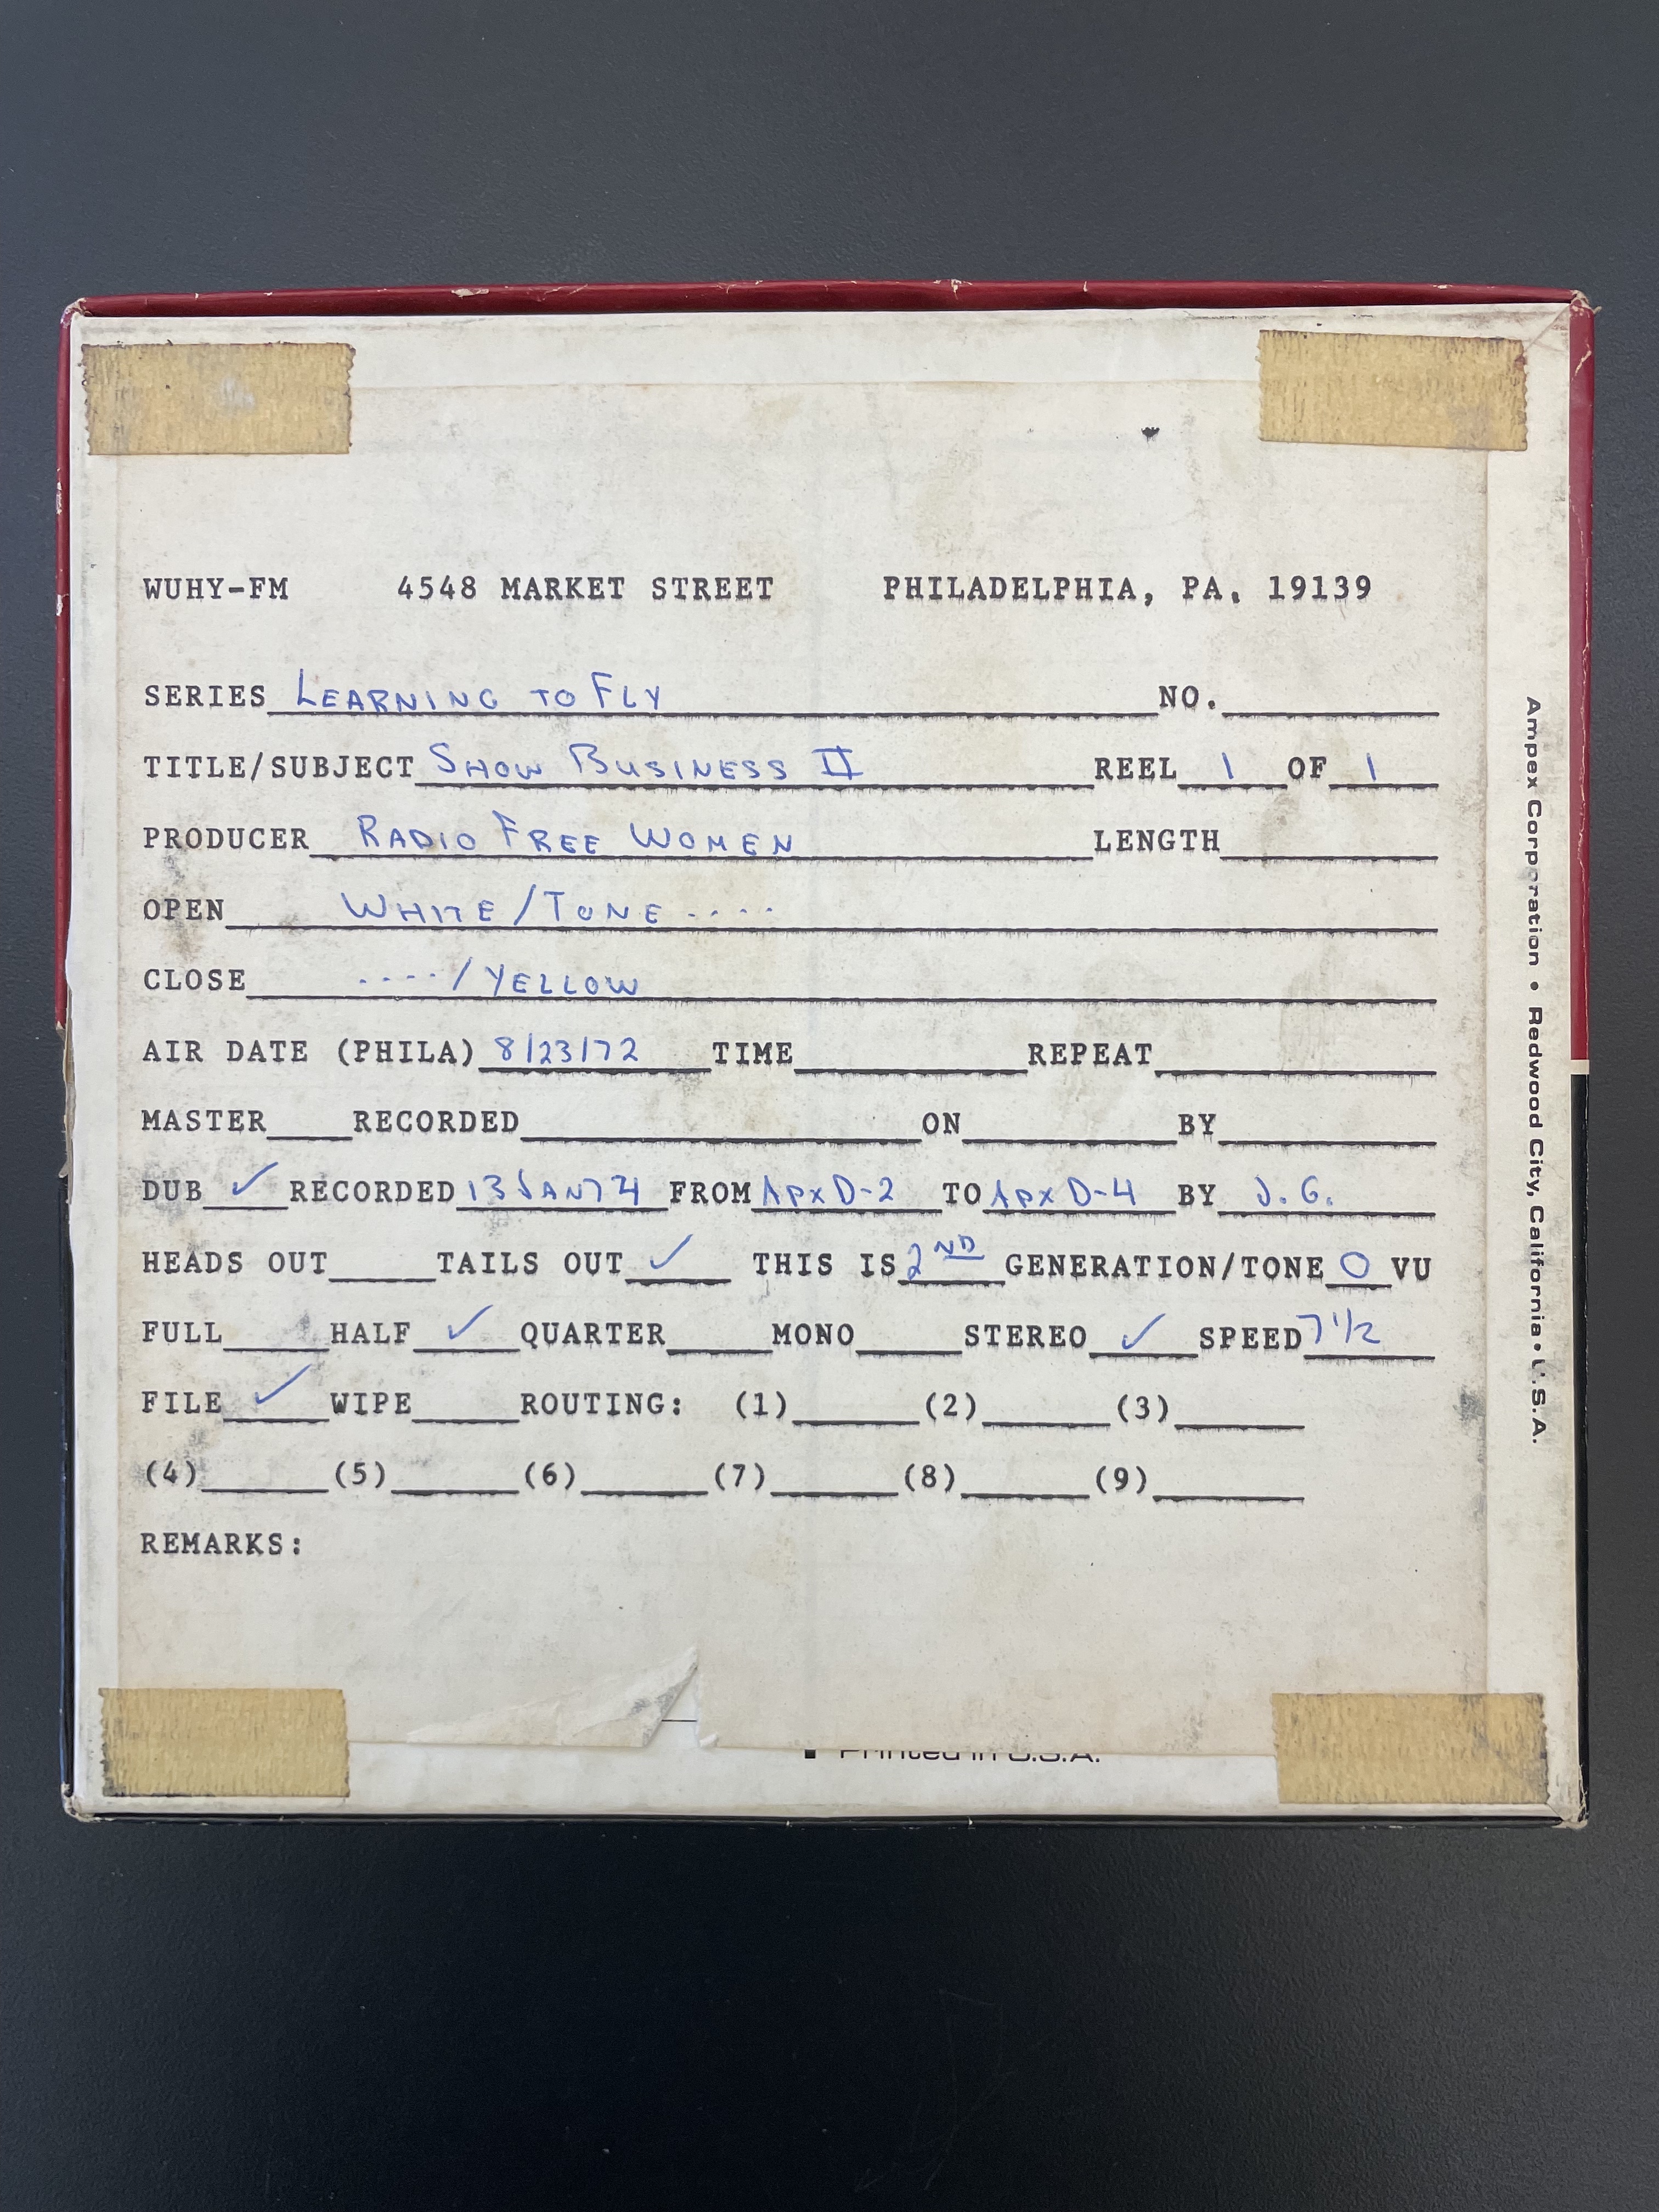 WUHY-FM 4548 MARKET STREET PHILADELPHIA, PA. 19139
SERIES LEARNING TO FLY NO.
TITLE/SUBJECT SHOW BUSINESS II REEL 1 OF 1
PRODUCER RADIO FREE WOMEN LENGTH
OPEN WHITE/TONE ....
CLOSE ..../YELLOW
AIR DATE (PHILA) 8/23/72 TIME REPEAT
MASTER RECORDED ON BY
DUB ✓ RECORDED 13 JAN 74 FROM APX D-2 TO APX D-4 BY J.G.
HEADS OUT TAILS OUT ✓ THIS IS 2ND GENERATION/TONE 0 VU
FULL HALF ✓ QUARTER MONO STEREO ✓ SPEED 7 1/2
FILE ✓ WIPE ROUTING: (1) (2) (3)
(4) (5) (6) (7) (8) (9)
REMARKS:
Printed in U.S.A.
Ampex Corporation • Redwood City, California • U.S.A.